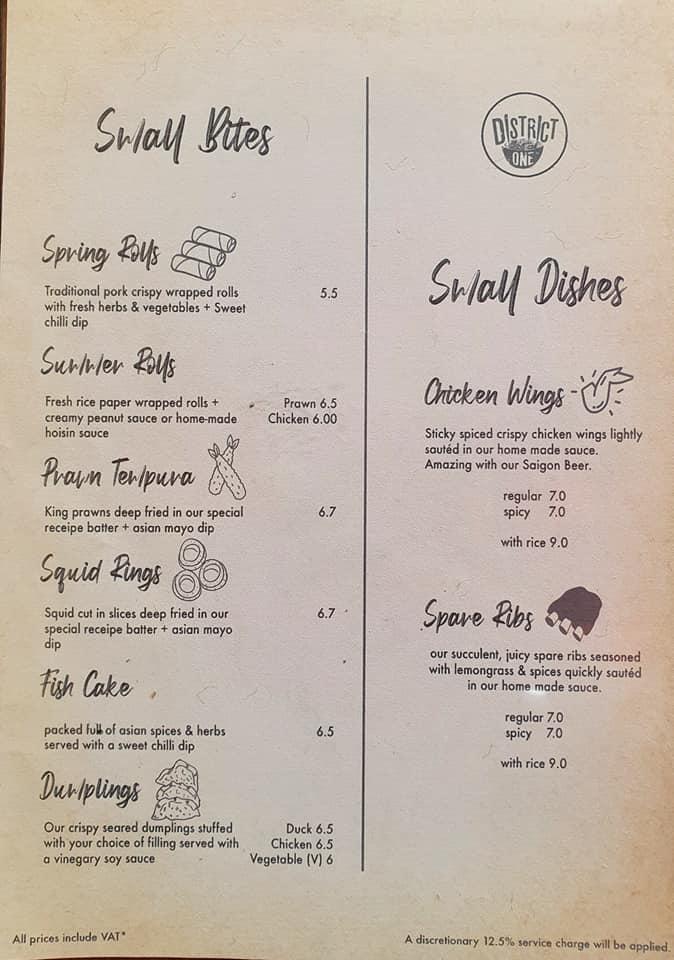 Small Bites
Spring Rolls
Traditional pork crispy wrapped rolls 5.5
with fresh herbs & vegetables + Sweet
chilli dip
Summer Rolls
Fresh rice paper wrapped rolls + Prawn 6.5
creamy peanut sauce or home-made Chicken 6.00
hoisin sauce
Prawn Tempura
King prawns deep fried in our special 6.7
receipe batter + asian mayo dip
Squid Rings
Squid cut in slices deep fried in our 6.7
special receipe batter + asian mayo
dip
Fish Cake
packed full of asian spices & herbs 6.5
served with a sweet chilli dip
Dumplings
Our crispy seared dumplings stuffed Duck 6.5
with your choice of filling served with Chicken 6.5
a vinegary soy sauce Vegetable (V) 6
All prices include VAT*
DISTRICT
ONE
Small Dishes
Chicken Wings
Sticky spiced crispy chicken wings lightly
sautéd in our home made sauce.
Amazing with our Saigon Beer.
regular 7.0
spicy 7.0
with rice 9.0
Spare Ribs
our succulent, juicy spare ribs seasoned
with lemongrass & spices quickly sautéd
in our home made sauce.
regular 7.0
spicy 7.0
with rice 9.0
A discretionary 12.5% service charge will be applied.